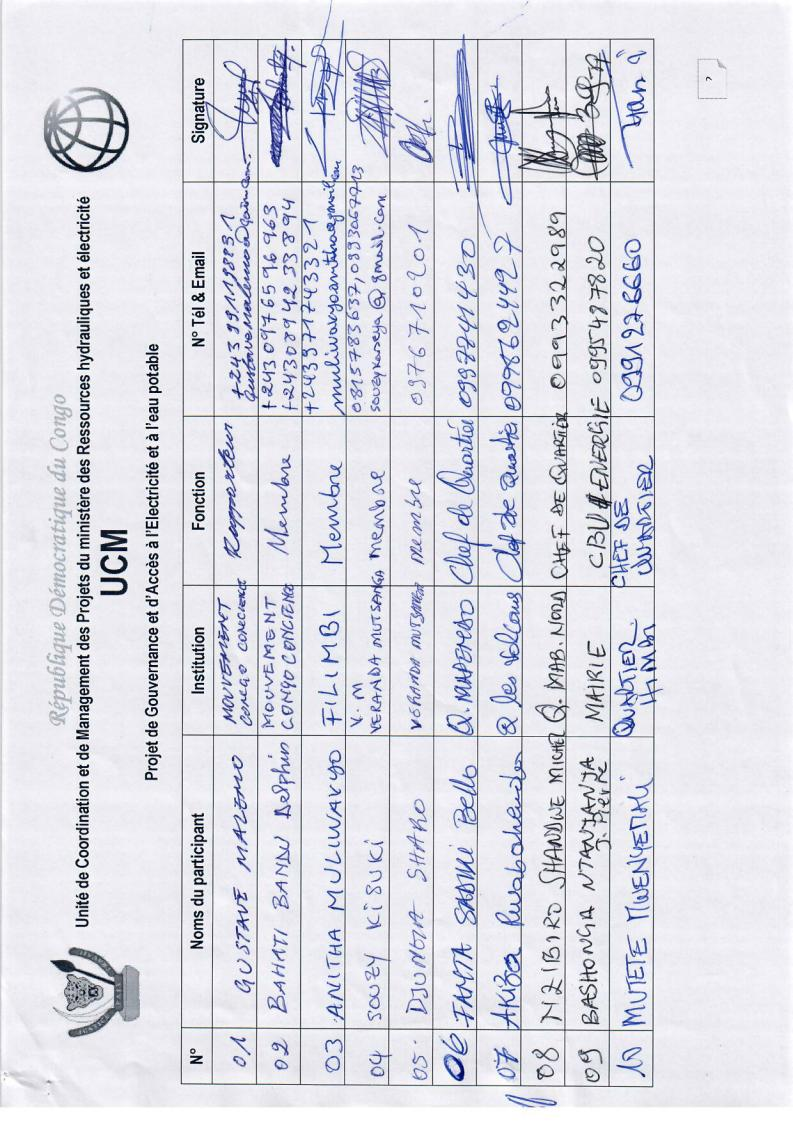 République Démocratique du Congo
Unité de Coordination et de Management des Projets du ministère des Ressources hydrauliques et électricité
UCM
Projet de Gouvernance et d'Accès à l'Electricité et à l'eau potable
N° Noms du participant Institution Fonction N° Tél & Email Signature
01 GUSTAVE MALEMO MOUVEMENT CONGO CONCIENCE Rapporteur +243991198831
02 BAHATI BANDU Delphin MOUVEMENT CONGO CONCIENCE Membre +243097659 6963 +243089423 3894
03 ANITHA MULIWAVYO FILIMBI Membre +243971743321 muliwavyoanitha@gmail.com
04 SOUZY KISUKI V.M VERANDA MUTSANGA Membre 0815783637, 0993067713 souzykaseya@gmail.com
05. DJUMA SHARO VERANDA MUTSANGA Membre 0976710201
06 FAMTA Bello Q. MAPENDO Chef de Quartier 0997741430
07 AKIBA Q les volcans Chef de Quartier 0998624427
08 NZIBIRO SHANDWE MICHEL Q. MAB. NORD CHEF DE QUARTIER 0993322989
09 BASHONGA NTANTANJA J. Pierre MAIRIE CBV ENERGIE 0995487820
10 MUTETE MWENYEMALI QUARTIER HIMBI CHEF DE QUARTIER 0991276660